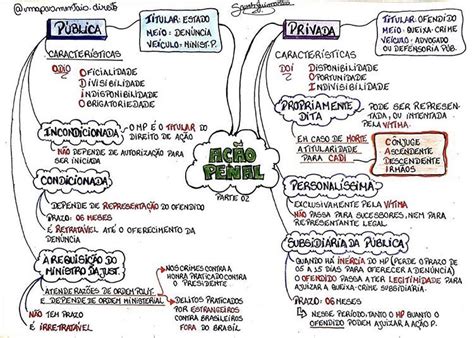 @mapasmentais.direito
PÚBLICA
TITULAR: ESTADO
MEIO: DENÚNCIA
VEÍCULO: MINIST. P.
CARACTERÍSTICAS
ODIO
OFICIALIDADE
DIVISIBILIDADE
INDISPONIBILIDADE
OBRIGATORIEDADE
INCONDICIONADA
O MP É O TITULAR DO
DIREITO DE AÇÃO
NÃO DEPENDE DE AUTORIZAÇÃO PARA
SER INICIADA
CONDICIONADA
DEPENDE DE REPRESENTAÇÃO DO OFENDIDO
PRAZO: 06 MESES
É RETRATÁVEL ATÉ O OFERECIMENTO DA
DENÚNCIA
À REQUISIÇÃO DO
MINISTRO DA JUST.
NOS CRIMES CONTRA A
HONRA PRATICADO CONTRA
O PRESIDENTE
ATENDE RAZÕES DE ORDEM POLIT.
E DEPENDE DE ORDEM MINISTERIAL
DELITOS PRATICADOS
POR ESTRANGEIROS
CONTRA BRASILEIROS
FORA DO BRASIL
NÃO TEM PRAZO
É IRRETRATÁVEL
AÇÃO
PENAL
PARTE 02
PRIVADA
TITULAR: OFENDIDO
MEIO: QUEIXA-CRIME
VEÍCULO: ADVOGADO
OU DEFENSORIA PÚB.
CARACTERÍSTICAS
DOI
DISPONIBILIDADE
OPORTUNIDADE
INDIVISIBILIDADE
PROPRIAMENTE
DITA
PODE SER REPRESEN-
TADA, OU INTENTADA
PELA VÍTIMA
EM CASO DE MORTE
A TITULARIDADE
PARA CADI
CÔNJUGE
ASCENDENTE
DESCENDENTE
IRMÃOS
PERSONALÍSSIMA
EXCLUSIVAMENTE PELA VÍTIMA
NÃO PASSA PARA SUCESSORES, NEM PARA
REPRESENTANTE LEGAL
SUBSIDIÁRIA DA PÚBLICA
QUANDO HÁ INÉRCIA DO MP (PERDE O PRAZO DE
05 A 15 DIAS PARA OFERECER A DENÚNCIA)
O OFENDIDO PASSA A TER LEGITIMIDADE PARA
AJUIZAR A QUEIXA-CRIME SUBSIDIÁRIA.
PRAZO: 06 MESES
NESSE PERÍODO, TANTO O MP QUANTO O
OFENDIDO PODEM AJUIZAR A AÇÃO P.